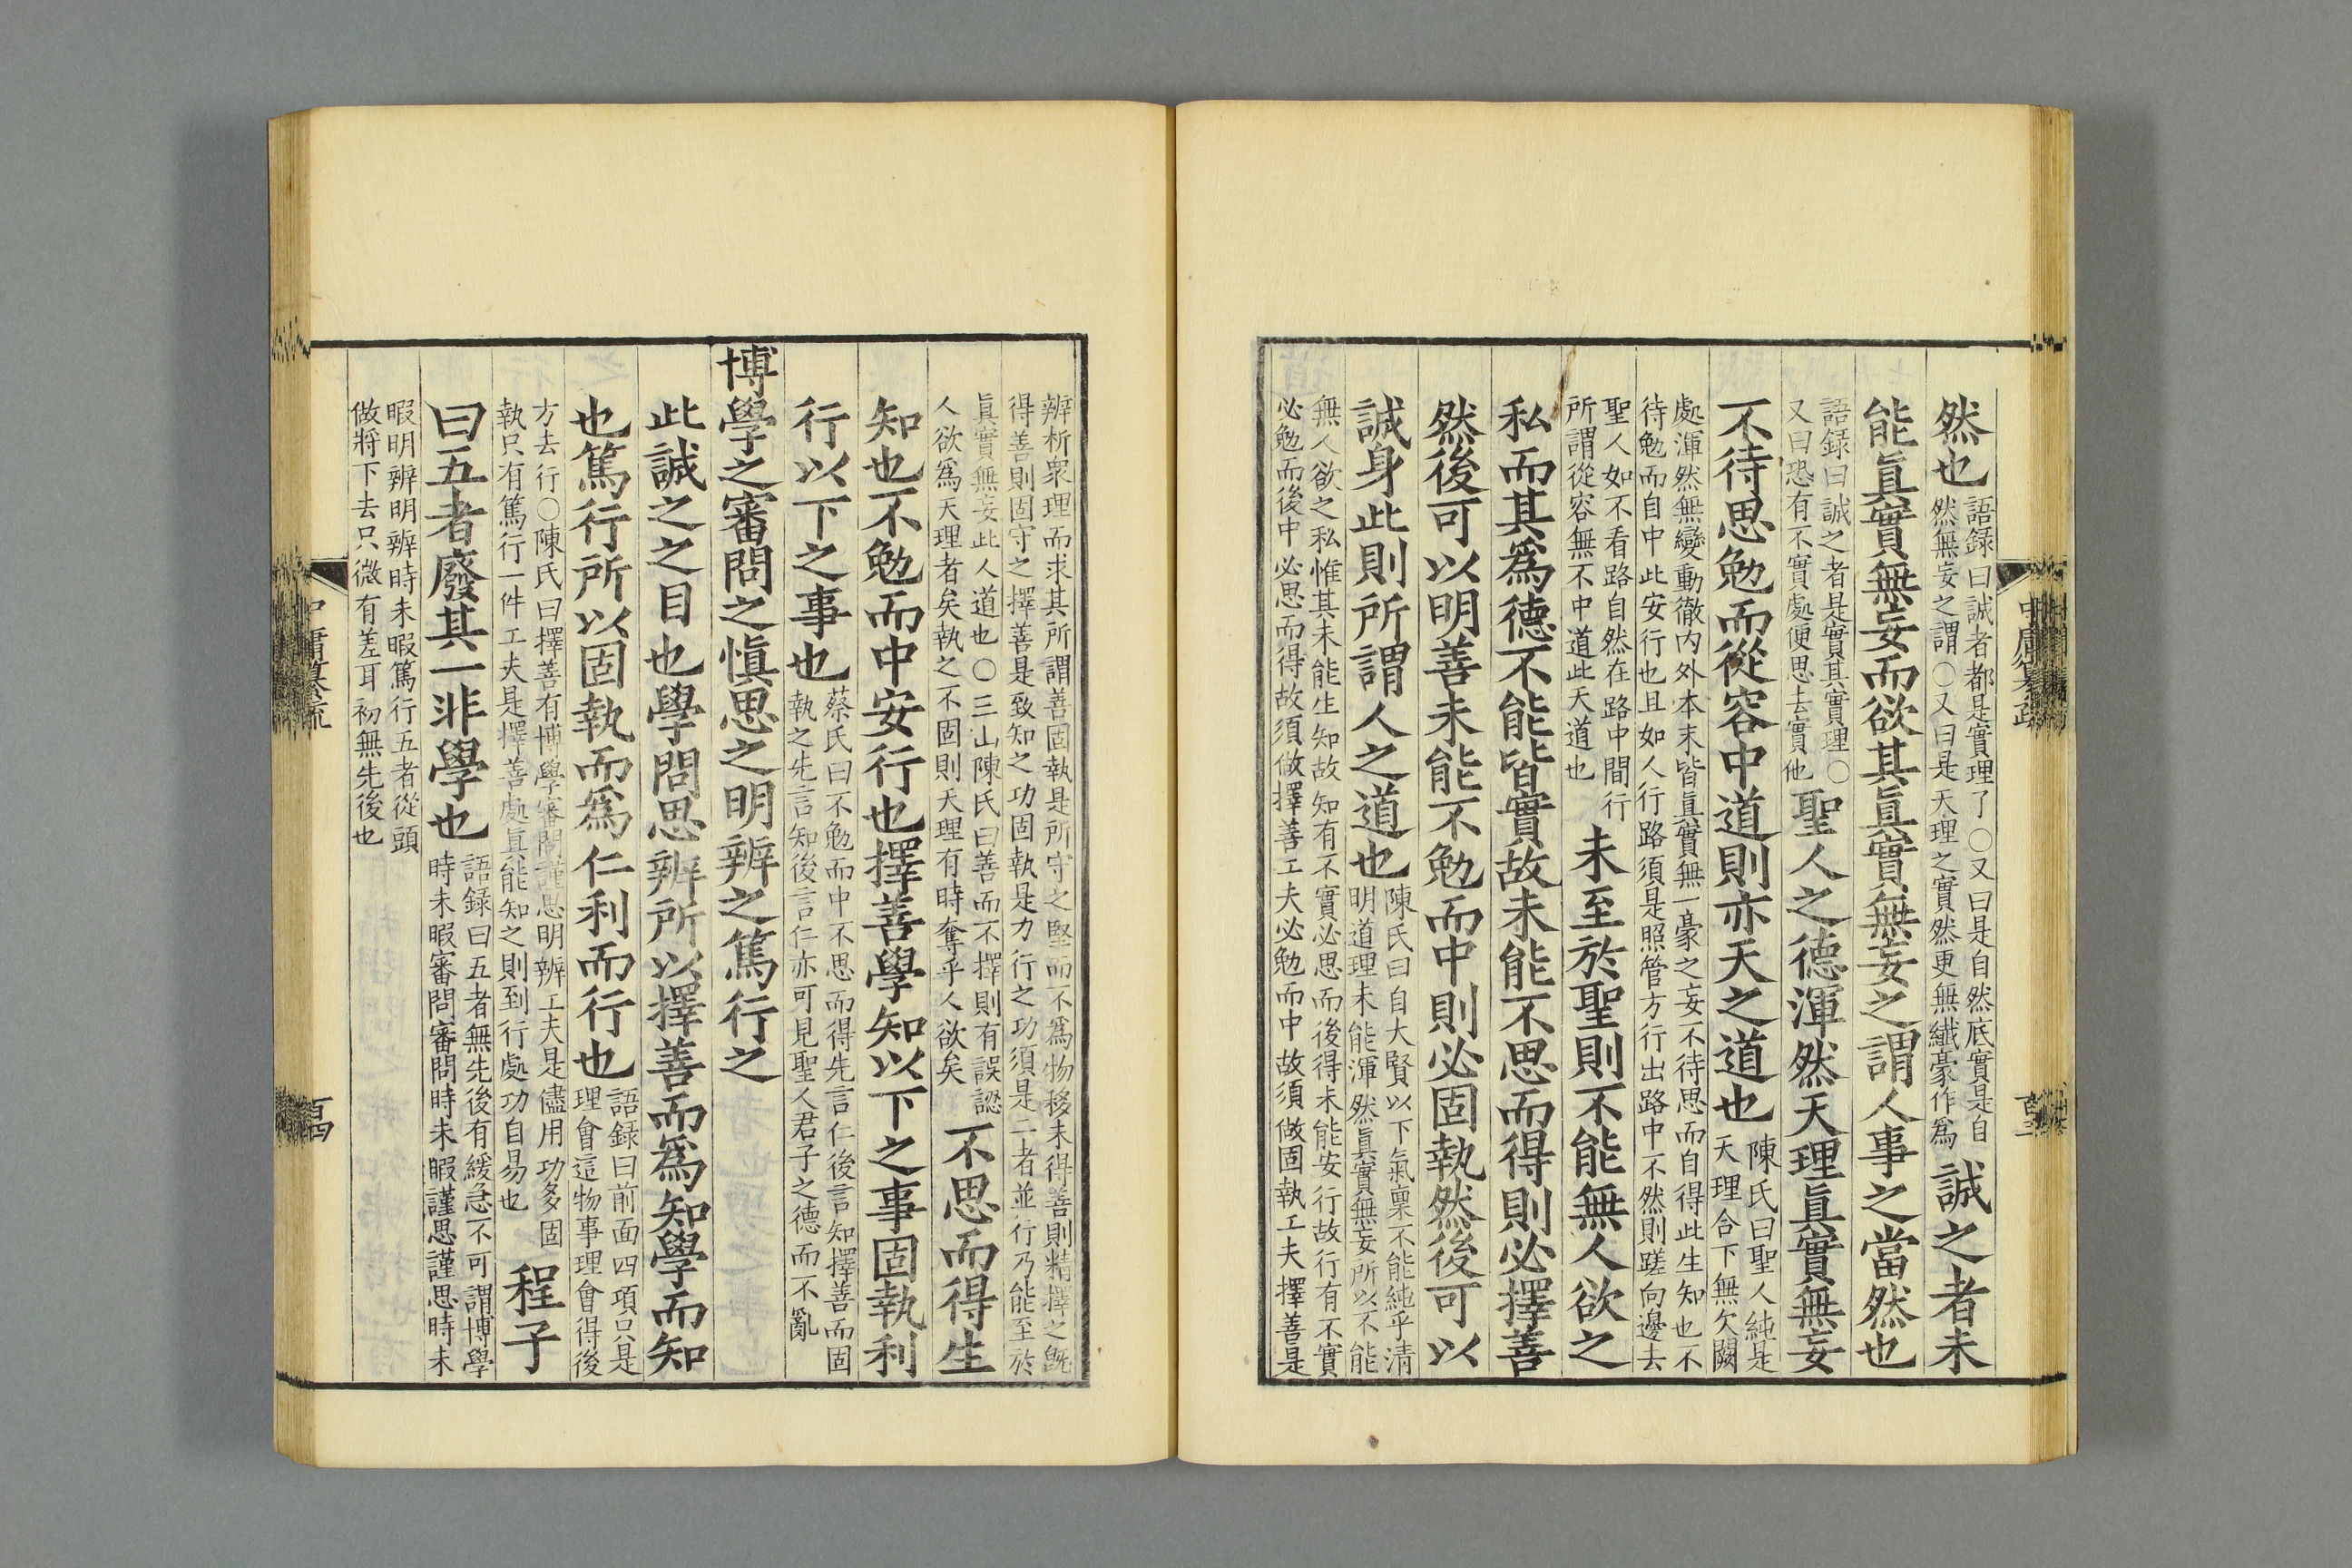 然也語録曰誠者都是實理了○又曰是自然底實是自
然無妄之謂○又曰是天理之實然更無纖豪作爲誠之者未
能眞實無妄而欲其眞實無妄之謂人事之當然也
語録曰誠之者是實其實理○
又曰恐有不實處便思去實他聖人之德渾然天理眞實無妄
不待思勉而從容中道則亦天之道也陳氏曰聖人純是
天理合下無欠闕
處渾然無變動徹内外本末皆眞實無一豪之妄不待思而自得此生知也不
待勉而自中此安行也且如人行路須是照管方行出路中不然則蹉向邊去
聖人如不看路自然在路中間行
所謂從容無不中道此天道也未至於聖則不能無人欲之
私而其爲德不能皆實故未能不思而得則必擇善
然後可以明善未能不勉而中則必固執然後可以
誠身此則所謂人之道也陳氏曰自大賢以下氣稟不能純乎清
明道理未能渾然眞實無妄所以不能
無人欲之私惟其未能生知故知有不實必思而後得未能安行故行有不實
必勉而後中必思而得故須做擇善工夫必勉而中故須做固執工夫擇善是
中庸纂疏
百三
辨析衆理而求其所謂善固執是所守之堅而不爲物移未得善則精擇之旣
得善則固守之擇善是致知之功固執是力行之功須是二者並行乃能至於
眞實無妄此人道也○三山陳氏曰善而不擇則有誤認
人欲爲天理者矣執之不固則天理有時奪乎人欲矣不思而得生
知也不勉而中安行也擇善學知以下之事固執利
行以下之事也蔡氏曰不勉而中不思而得先言仁後言知擇善而固
執之先言知後言仁亦可見聖人君子之德而不亂
博學之審問之愼思之明辨之篤行之
此誠之之目也學問思辨所以擇善而爲知學而知
也篤行所以固執而爲仁利而行也語録曰前面四項只是
理會這物事理會得後
方去行○陳氏曰擇善有博學審問謹思明辨工夫是儘用功多固
執只有篤行一件工夫是擇善處眞能知之則到行處功自易也程子
曰五者廢其一非學也語録曰五者無先後有緩急不可謂博學
時未暇審問審問時未暇謹思謹思時未
暇明辨明辨時未暇篤行五者從頭
做將下去只微有差耳初無先後也
中庸纂疏
百四